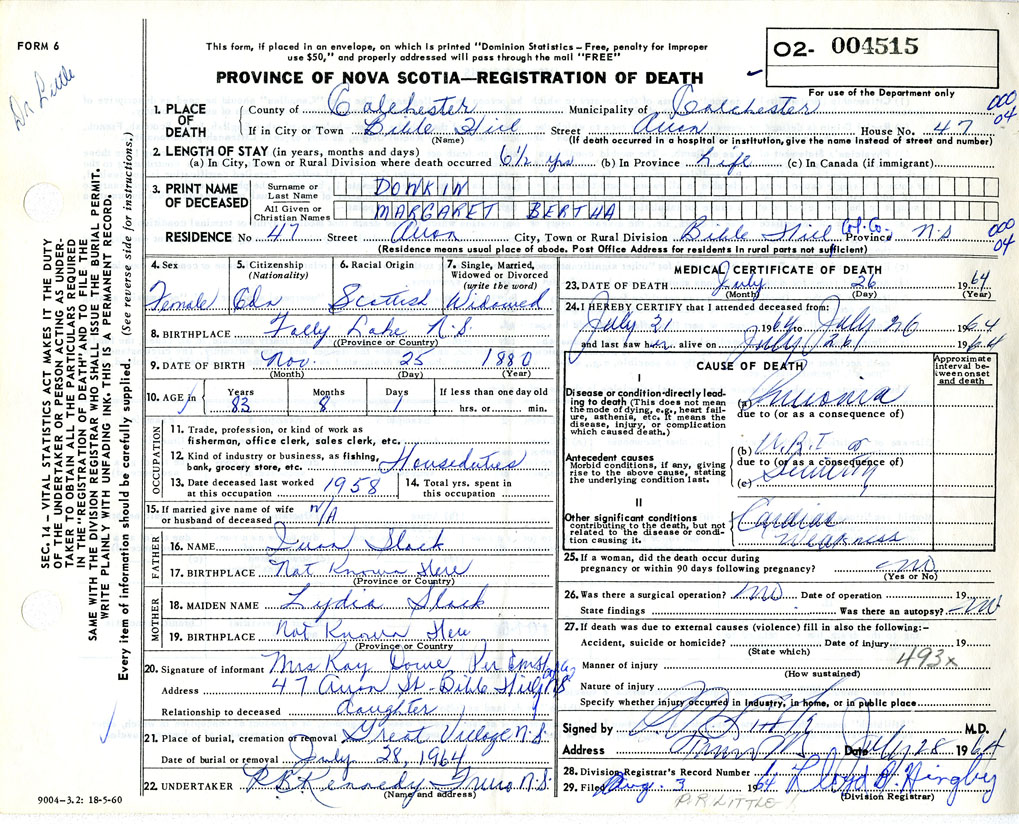 FORM 6
Dr Little
This form, if placed in an envelope, on which is printed "Dominion Statistics – Free, penalty for improper
use $50," and properly addressed will pass through the mail "FREE"
O2- 004515
For use of the Department only
PROVINCE OF NOVA SCOTIA—REGISTRATION OF DEATH
000
04
1. PLACE OF DEATH
County of Colchester Municipality of Colchester
If in City or Town Bible Hill Street House No. 47
(Name) (If death occurred in a hospital or institution, give name instead of street and number)
2. LENGTH OF STAY (in years, months and days)
(a) In City, Town or Rural Division where death occurred 6½ yrs (b) In Province Life (c) In Canada (if immigrant)
3. PRINT NAME OF DECEASED
Surname or Last Name DONKIN
All Given or Christian Names MARGARET BERTHA
RESIDENCE No 47 Street City, Town or Rural Division Bible Hill Col. Co. Province N.S
000
04
(Residence means usual place of abode. Post Office Address for residents in rural parts not sufficient)
4. Sex
Female
5. Citizenship
(Nationality)
Cdn
6. Racial Origin
Scottish
7. Single, Married,
Widowed or Divorced
(write the word)
Widowed
8. BIRTHPLACE Folly Lake N.S.
(Province or Country)
9. DATE OF BIRTH Nov. 25 1880
(Month) (Day) (Year)
10. AGE in Years 83 Months 8 Days 1 If less than one day old
hrs. or min.
OCCUPATION
11. Trade, profession, or kind of work as
fisherman, office clerk, sales clerk, etc.
12. Kind of industry or business, as fishing,
bank, grocery store, etc. Houseduties
13. Date deceased last worked
at this occupation 1958
14. Total yrs. spent in
this occupation
15. If married give name of wife
or husband of deceased N/A
FATHER
16. NAME Slack
17. BIRTHPLACE Not Known Here
(Province or Country)
MOTHER
18. MAIDEN NAME Lydia Slack
19. BIRTHPLACE Not Known Here
(Province or Country)
20. Signature of informant Mrs Kay Dowe Per
Address 47 St - Bible Hill NS
Relationship to deceased daughter
21. Place of burial, cremation or removal Great Village N.S
Date of burial or removal July 28, 1964
22. UNDERTAKER Kennedy Truro N.S.
(Name and address)
MEDICAL CERTIFICATE OF DEATH
23. DATE OF DEATH July 26 1964
(Month) (Day) (Year)
24. I HEREBY CERTIFY that I attended deceased from:
July 21 1964 to July 26 1964
and last saw her alive on July 26 1964
CAUSE OF DEATH
Approximate
interval be-
tween onset
and death
I
Disease or condition-directly lead-
ing to death (This does not mean
the mode of dying, e.g., heart fail-
ure, asthenia, etc. It means the
disease, injury, or complication
which caused death.)
(a) Pneumonia
due to (or as a consequence of)
(b) U.R.I or
Antecedent causes
Morbid conditions, if any, giving
rise to the above cause, stating
the underlying condition last.
due to (or as a consequence of)
(c) Senility
II
Other significant conditions
contributing to the death, but not
related to the disease or condi-
tion causing it.
Cardiac
Weakness
25. If a woman, did the death occur during
pregnancy or within 90 days following pregnancy? no
(Yes or No)
26. Was there a surgical operation? no Date of operation 19
State findings Was there an autopsy? no
27. If death was due to external causes (violence) fill in also the following:–
Accident, suicide or homicide? Date of injury 19
(State which)
493x
Manner of injury
(How sustained)
Nature of injury
Specify whether injury occurred in industry, in home, or in public place
Signed by M.D.
Address Truro N.S. Date July 28 1964
28. Division Registrar's Record Number
29. Filed Aug. 3 1964 Lloyd
(Division Registrar)
P.R LITTLE
SEC. 14 – VITAL STATISTICS ACT MAKES IT THE DUTY
OF THE UNDERTAKER OR PERSON ACTING AS UNDER-
TAKER TO OBTAIN ALL THE PARTICULARS REQUIRED
IN THE "REGISTRATION OF DEATH" AND TO FILE THE
SAME WITH THE DIVISION REGISTRAR WHO SHALL ISSUE THE BURIAL PERMIT.
WRITE PLAINLY WITH UNFADING INK. THIS IS A PERMANENT RECORD.
Every item of information should be carefully supplied. (See reverse side for instructions.)
9004–3.2: 18-5-60